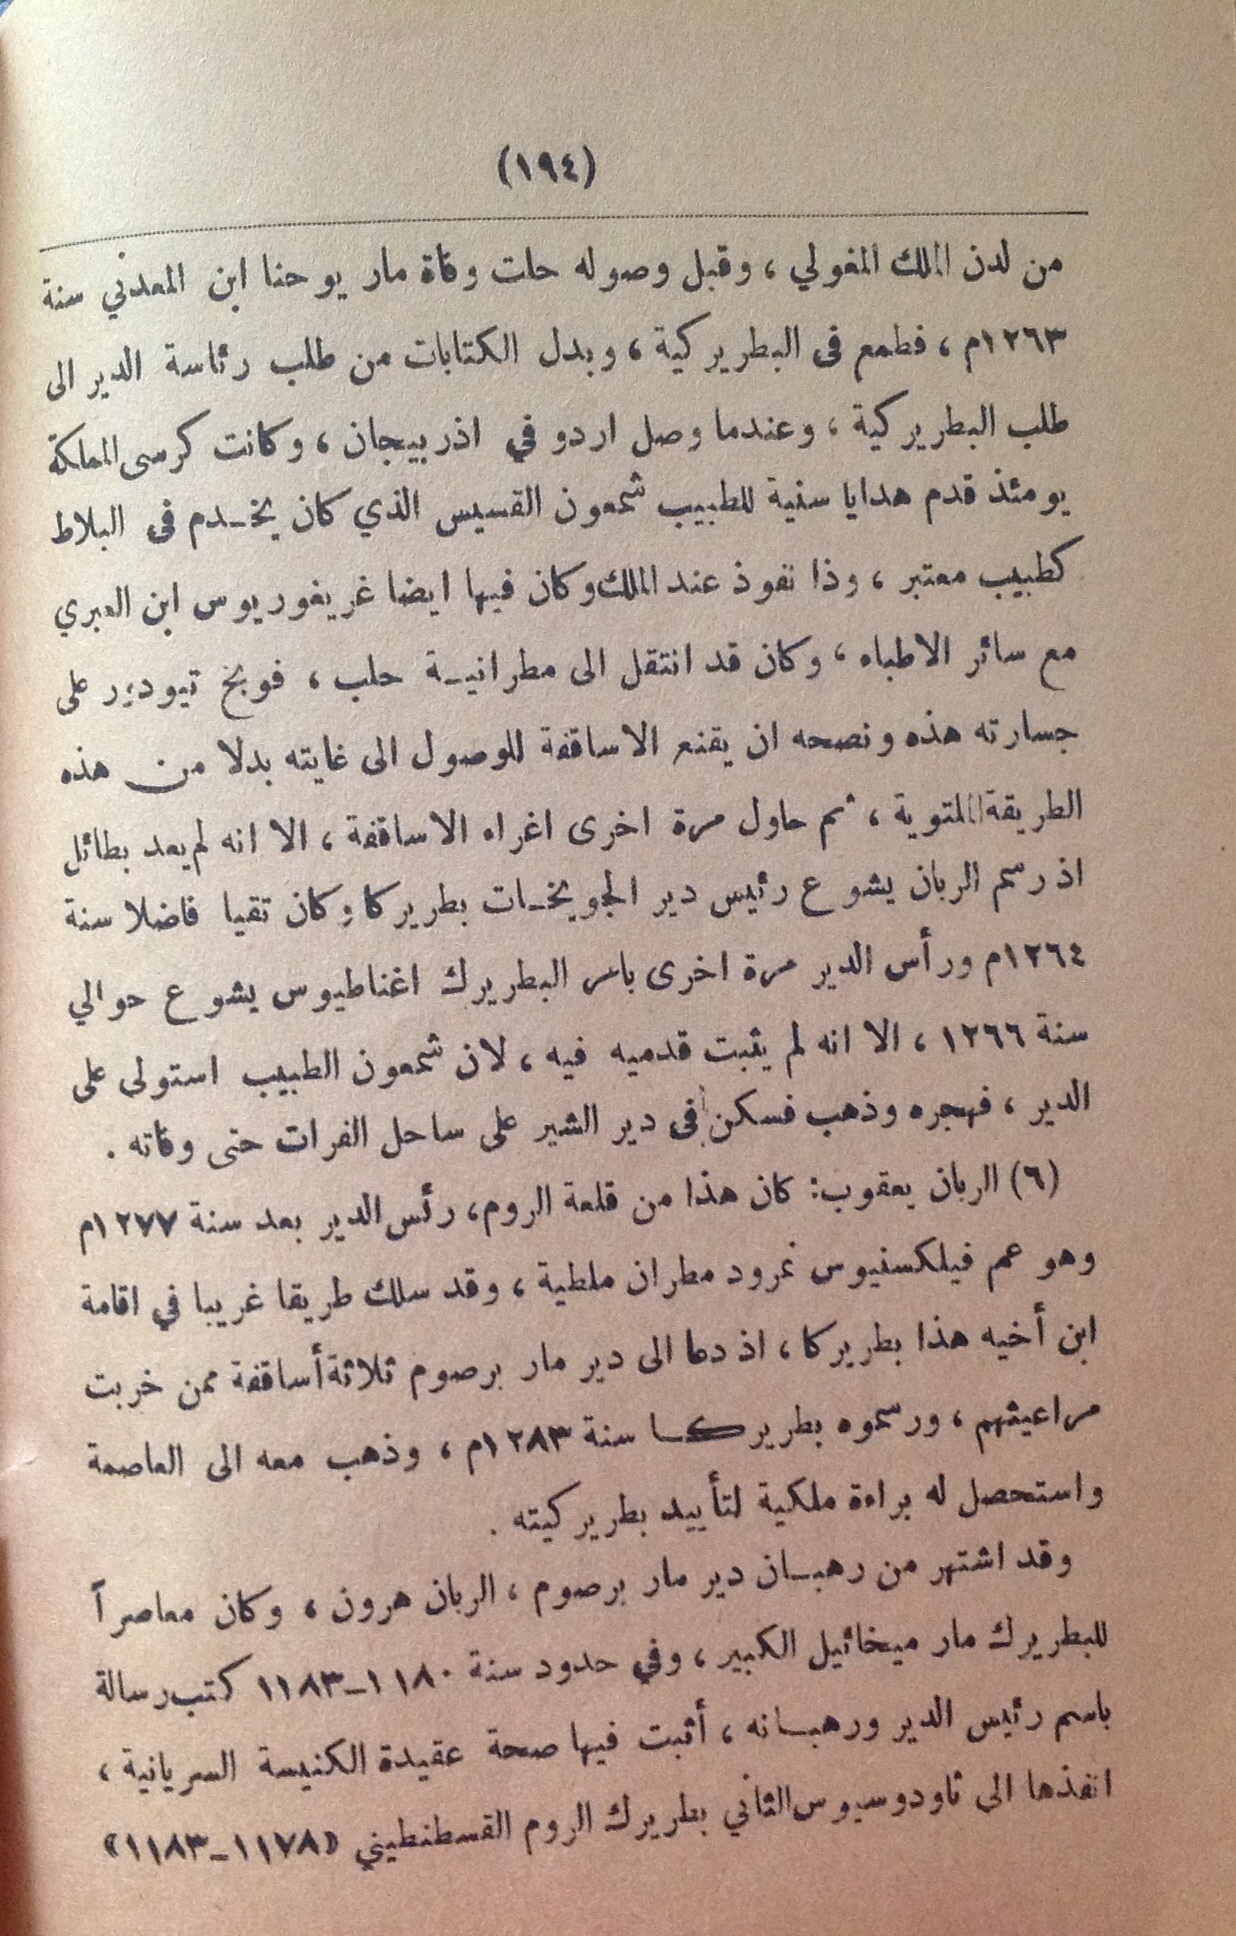 (١٩٤)
من لدن الملك المغولي ، وقبل وصوله حلت وفاة مار يوحنا ابن المعدني سنة
١٢٦٣م ، فطمع فى البطريركية ، وبدل الكتابات من طلب رئاسة الدير الى
طلب البطريركية ، وعندما وصل اردو في اذربيجان ، وكانت كرسى المملكة
يومئذ قدم هدايا سنية للطبيب شمعون القسيس الذي كان يخـدم فى البلاط
كطبيب معتبر ، وذا نفوذ عند الملك وكان فيها ايضا غريغوريوس ابن العبري
مع سائر الاطباء ، وكان قد انتقل الى مطرانيـة حلب ، فوبخ تيودور على
جسارته هذه ونصحه ان يقنع الاساقفة للوصول الى غايته بدلا من هذه
الطريقة الملتوية ، ثم حاول مرة اخرى اغراء الاساقفة ، الا انه لم يعد بطائل
اذ رسم الربان يشوع رئيس دير الجويخـات بطريركا وكان تقيا فاضلا سنة
١٢٦٤م ورأس الدير مرة اخرى بامر البطريرك اغناطيوس يشوع حوالي
سنة ١٢٦٦ ، الا انه لم يثبت قدميه فيه ، لان شمعون الطبيب استولى على
الدير ، فهجره وذهب فسكن فى دير الشير على ساحل الفرات حتى وفاته .
(٦) الربان يعقوب: كان هذا من قلعة الروم، رئس الدير بعد سنة ١٢٧٧م
وهو عم فيلكسنيوس نمرود مطران ملطية ، وقد سلك طريقا غريبا في اقامة
ابن أخيه هذا بطريركا ، اذ دعا الى دير مار برصوم ثلاثة أساقفة ممن خربت
مراعيثهم ، ورسموه بطريركـا سنة ١٢٨٣م ، وذهب معه الى العاصمة
واستحصل له براءة ملكية لتأييد بطريركيته .
وقد اشتهر من رهبـان دير مار برصوم ، الربان هرون ، وكان معاصراً
للبطريرك مار ميخائيل الكبير ، وفي حدود سنة ١١٨٠ـ١١٨٣ كتب رسالة
باسم رئيس الدير ورهبـانه ، أثبت فيها صحة عقيدة الكنيسة السريانية ،
انفذها الى ثاودوسيوس الثاني بطريرك الروم القسطنطيني «١١٧٨ـ١١٨٣»